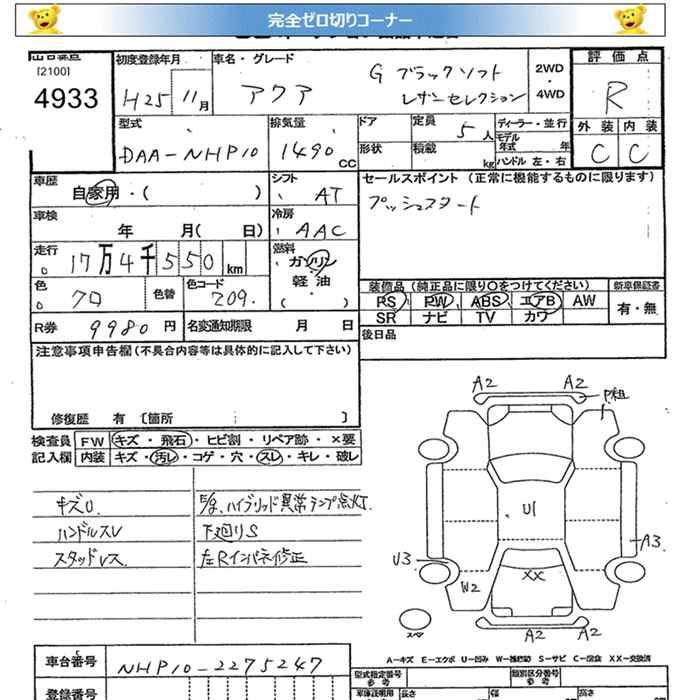 完全ゼロ切りコーナー
[2100]
4933
初度登録年月
H25 11月
車名・グレード
アクア
G ブラックソフト
レザーセレクション
2WD
・
4WD
評価点
R
外装 内装
C C
型式
DAA-NHP10
排気量
1490 CC
ドア
形状
定員
5人
積載
kg
ディーラー・並行
モデル年式 年
ハンドル 左・右
車歴
自家用・( )
シフト
AT
車検
年 月( 日)
冷房
AAC
走行
17万4千550km
燃料
ガソリン
軽油
( )
色
クロ
色替
色コード
209
R券 9980円
名変通知期限 月 日
セールスポイント (正常に機能するものに限ります)
プッシュスタート
装備品 (純正品に限り○をつけてください)
新車保証書
PS PW ABS エアB AW
有・無
SR ナビ TV カワ
後日品
注意事項申告欄(不具合内容等は具体的に記入して下さい)
修復歴 有 [箇所 ]
検査員
記入欄
FW キズ・飛石・ヒビ割・リペア跡・×要
内装 キズ・汚レ・コゲ・穴・スレ・キレ・破レ
キズU.
ハンドルスレ
スタッドレス
ハイブリッド異常ランプ点灯.
下廻りS
左Rインパネ修正
A2
A2
P粗
U1
A3
U3
W2
XX
スペア
A2
A2
A-キズ E-エクボ U-凹み W-補修跡 S-サビ C-腐食 XX-交換済
車台番号
NHP10-2275247
登録番号
型式指定番号
参考
類別区分番号
参考
長さ
幅
高さ